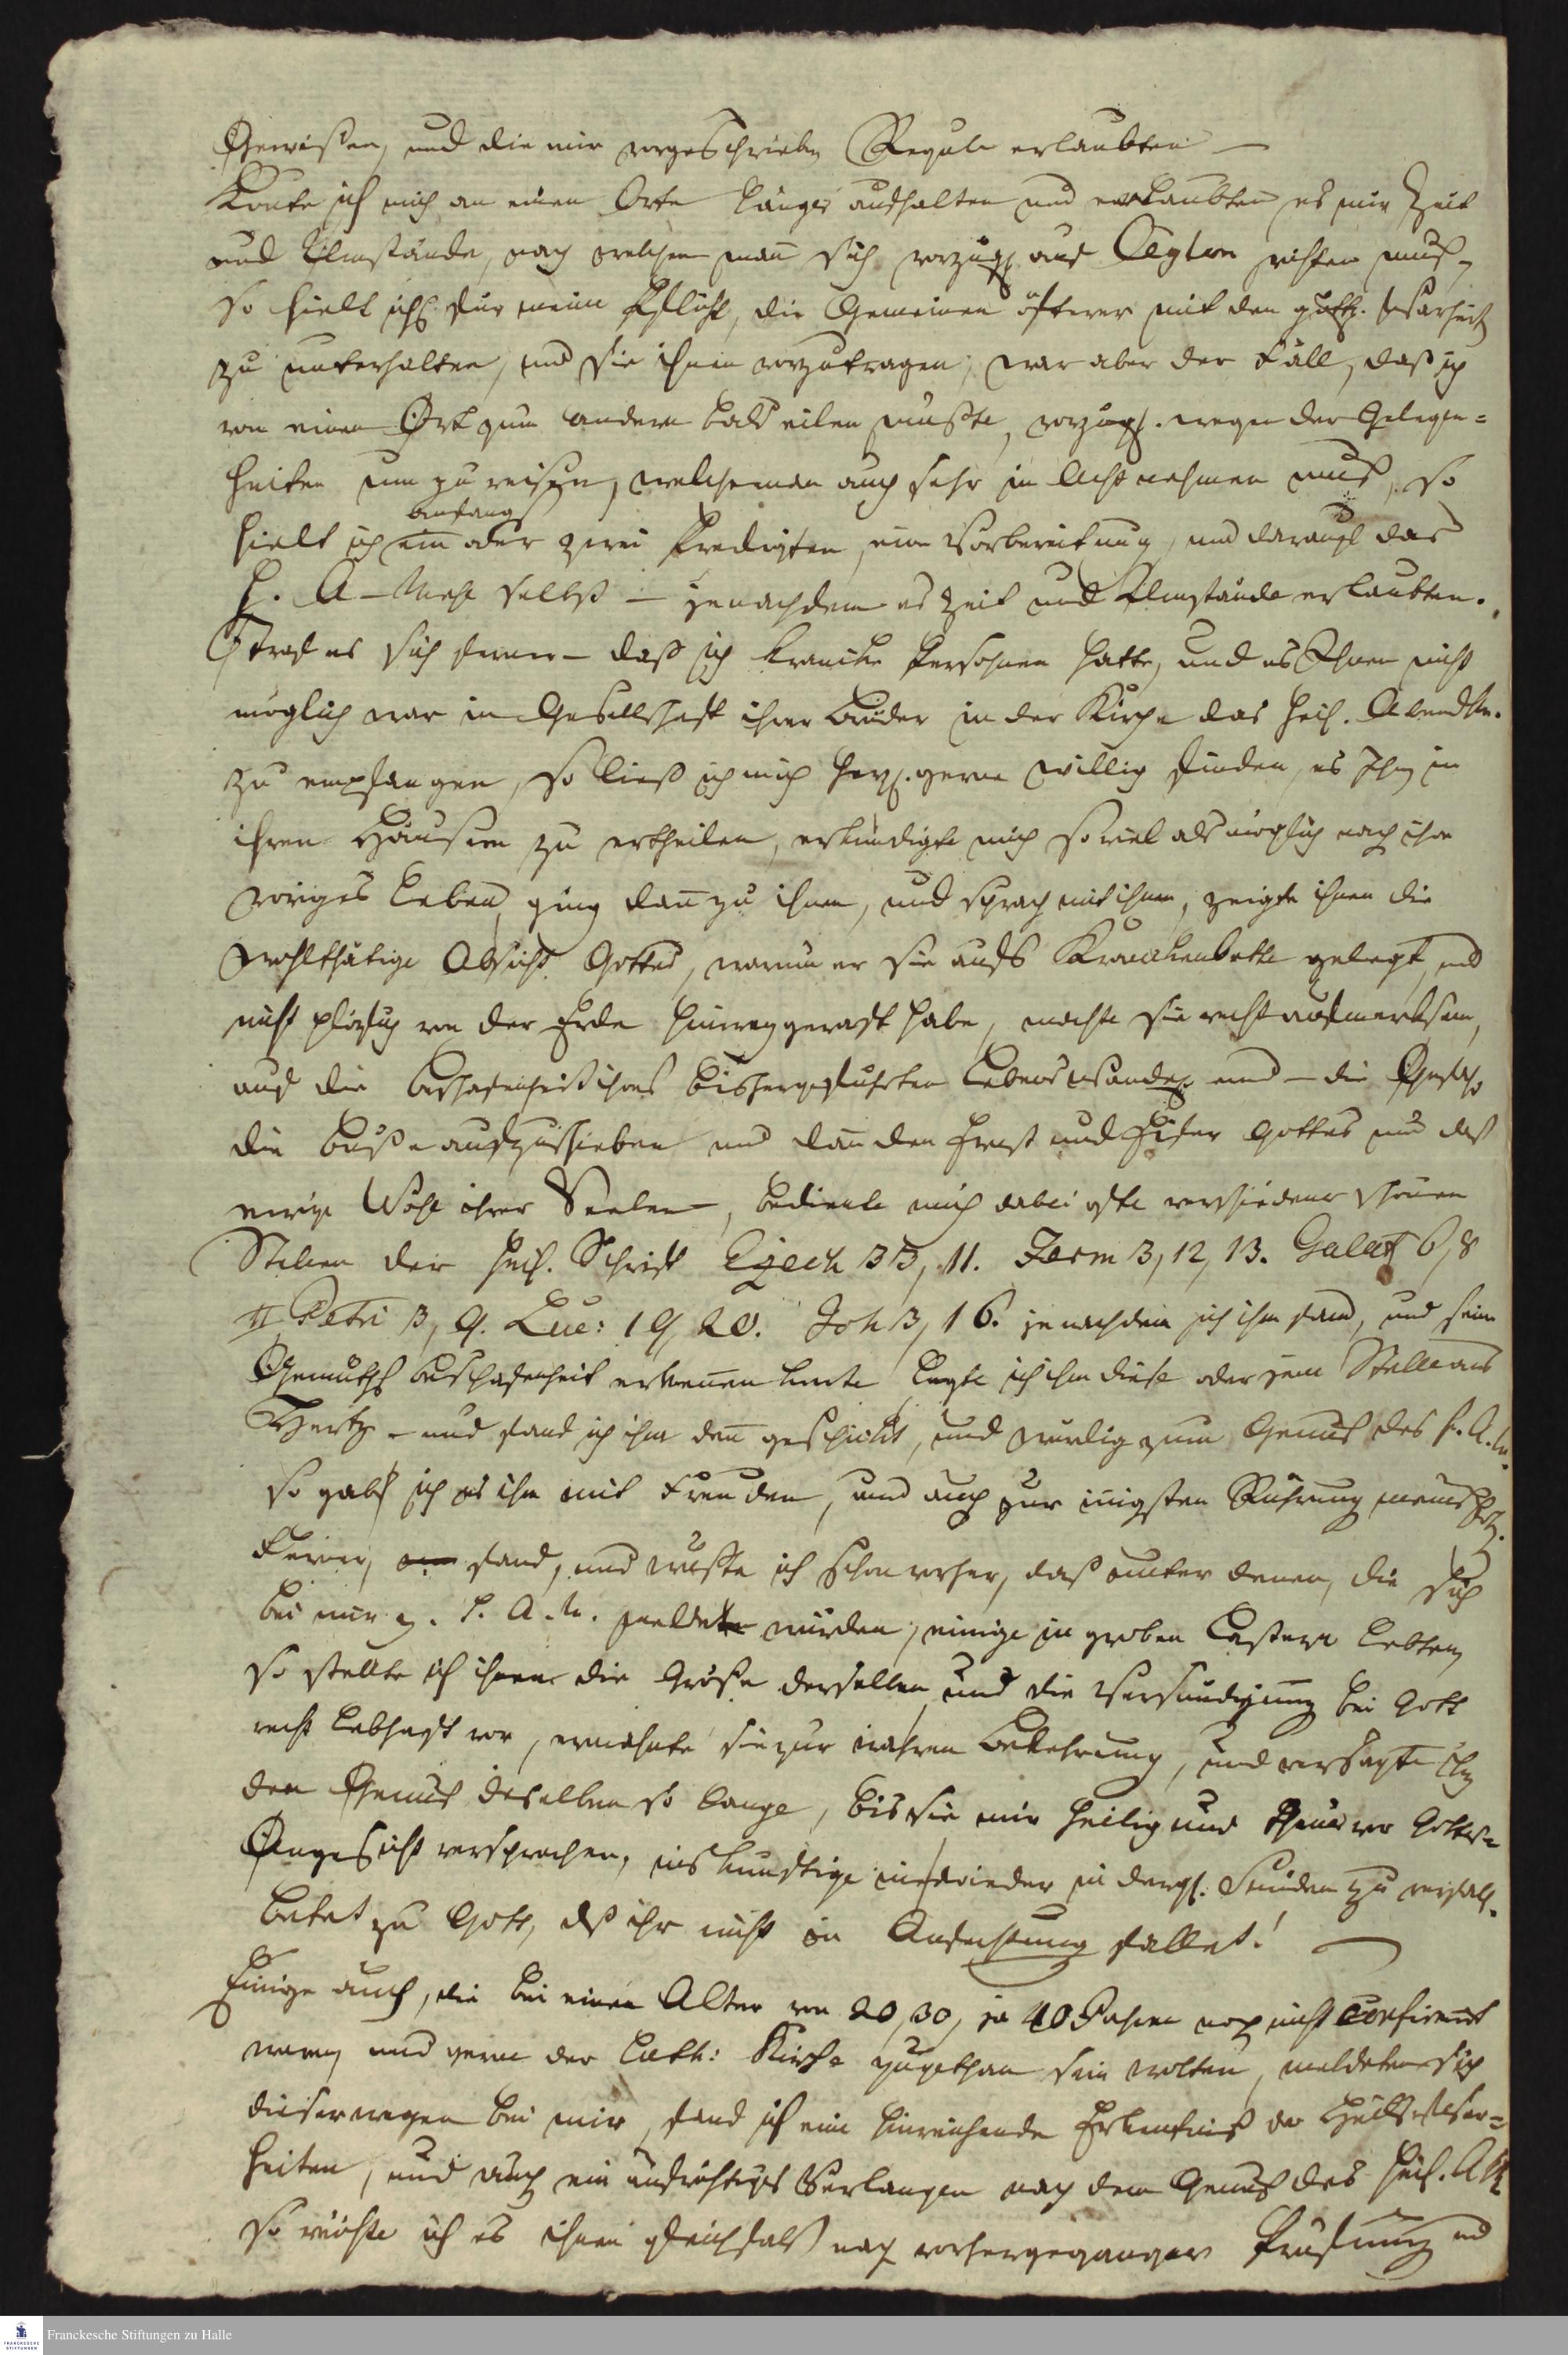 Gewißen, und die mir vorgeschrieben Regule erlaubten —
Konte ich mich an einen Orte länger aufhalten und erlaubten es mir Zeit
und Umstände, nach welchen man sich vorzügl. auf richten muß,
so hielt ichs für meine Pflicht, die Gemeinen öfterer mit den göttl. Warheiten
zu unterhalten, und sie ihnen vorzutragen; war aber der Fall, daß ich
von einen Ort zum andern bald eilen mußte, vorzügl. wegen der Gelegen=
heiten um zu reisen, welche man auch sehr in Acht nehmen muß, so
anfangs
hielt ich ein oder zwei Predigten, eine Vorbereitung, und darauf das
H. A–Mahl selbst — jenachdem es Zeit und Umstände erlaubten.
Traf es sich ferner — daß ich krancke Persohnen hatte, und es Ihnen nicht
möglich war in Gesellschaft ihrer Brüder in der Kirche das heil. Abendm.
zu empfangen, so ließ ich mich herzl. gerne willig finden, es Ihn in
ihren Häusern zu ertheilen, erkundigte mich soviel als möglich nach ihr
voriges Leben, ging dan zu ihnen, und sprach mit ihnen, zeigte ihnen die
wohlthätige Absicht Gottes, warum er sie aufs Kranckenbette gelegt, und
nicht plözlich von der Erde hinweggeraft habe, machte sie recht aufmerksam,
auf die Beschafenheit ihres bishergeführten Lebenswandels und — die Gefahr
die Buße aufzuschieben und dan den Ernst und Eifer Gottes um das
ewige Wohl ihrer Seelen, bediente mich dabei ofte verschiedene schönen
Stelen der heil. Schrift Ezech 33, 11. Jerm 3, 12, 13. Galat 6, 8
II Petri 3, 9. Luc: 19, 20. Joh 3, 16. jenachdem ich ihn fand, und seine
Gemüths beschafenheit erkennen konte legte ich ihm diese oder jene Stelle ans
Hertz — und fand ich ihn den geschickt, und würdig zum Genuß des h. A. m.
so gab ich es ihm mit Freuden, und auch zur innigsten Rührung meines Hertz.
Ferner, fand, und wußte ich schon vorher, daß unter denen, die sich
bei mir z. h. A. M. melde würden, einige in groben Lastern lebten,
so stellte ich ihnen die Größe derselben und die Versündigung bei Gott
recht lebhaft vor, ermahnte sie zur wahren Bekehrung, und versagte ihn
den Genuß deselben so lange, bis sie mir heilig und theuer vor Gottes
Angesicht versprachen, ins künftige nie wieder in dergl. Sünden zu verfall.
betet zu Gott, das ihr nicht in Anfechtung fallet! —
Einige auch, die bei einen Alter von 20, 30, ja 40 Jahren noch nicht confirmirt
waren, und gerne der luth: Kirche zugethan sein wolten, meldeten sich
dieserwegen bei mir, fand ich eine hinreichende Erkentniß der Heilswahr=
heiten, und auch ein aufrichtiges Verlangen nach dem Genuß des heil. A M
so reichte ich es ihnen gleichfals nach vorhergeganger Prüfung und
Franckesche Stiftungen zu Halle